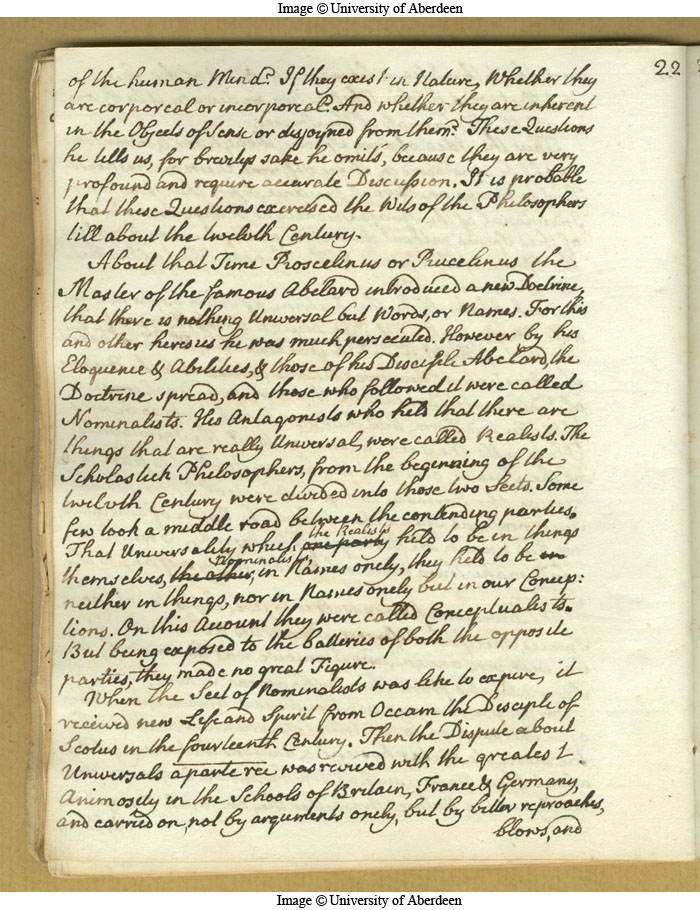 Image © University of Aberdeen
22
of the human Mind? If they exist in Nature, Whether they
are corporeal or incorporeal? And whether they are inherent
in the Objects of Sense or disjoyned from them? These Questions
he tells us, for brevitys sake he omits, because they are very
profound and require accurate Discussion. It is probable
that these Questions exercised the Wits of the Philosophers
till about the twelvth Century.
About that Time Roscelinus or Rucelinus the
Master of the famous Abelard introduced a new Doctrine,
that there is nothing Universal but Words, or Names. For this
and other heresies he was much persecuted. However by his
Eloquence & Abilities, & those of his Disciple Abelard, the
Doctrine spread, and those who followed it were called
Nominalists. His Antagonists who held that there are
things that are really Universal, were called Realists. The
Scholastick Philosophers, from the beginning of the
twelvth Century were divided into those two Sects. Some
few took a middle road between the contending parties.
the Realists
That Universality which one party held to be in things
Nominalists,
themselves, the other, in Names onely, they held to be in
neither in things, nor in Names onely but in our Concep:
tions. On this Account they were called Conceptualists.
But being exposed to the batteries of both the opposite
parties, they made no great Figure.
When the Sect of Nominalists was like to expire, it
received new Life and Spirit from Occam the Disciple of
Scotus in the fourteenth Century. Then the Dispute about
Universals a parte rei was revived with the greatest
Animosity in the Schools of Britain, France & Germany,
and carried on, not by arguments onely, but by bitter reproaches,
blows, and
Image © University of Aberdeen